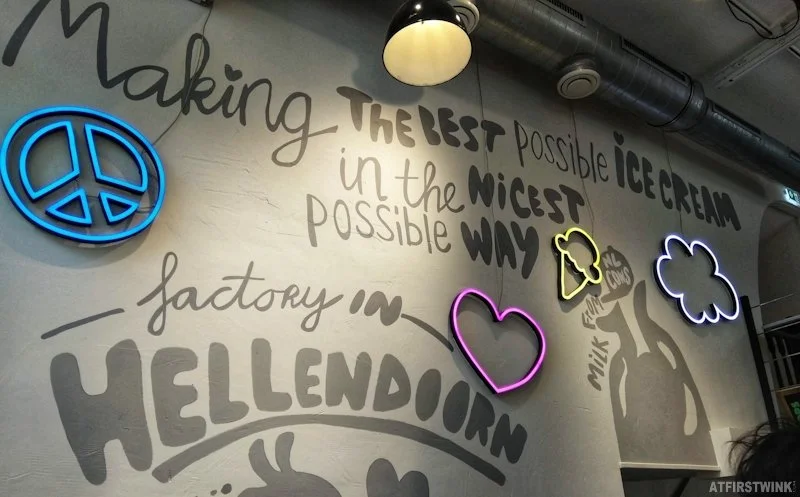 Making THE BEST possible ICE CREAM
in the NiCEST
POSSiBLE WAY
factory IN
HELLENDOORN
MiLK FROM
NL
COWS
ATFIRSTWINK.COM